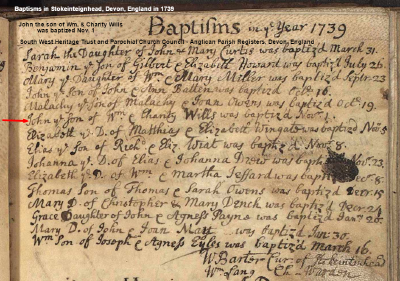 Baptisms in Stokeinteignhead, Devon, England in 1739
John the son of Wm. & Charity Wills
was baptized Nov. 1
South West Heritage Trust and Parochial Church Council - Anglican Parish Registers, Devon, England
Baptisms in yᵉ Year 1739
Sarah the Daughter of John & Mary Curtis was baptized March 31.
Benjamin yᵉ Son of Gilbert & Elizabeth Howard was baptizd July 26.
Mary yᵉ Daughter of Wm & Mary Miller was baptizd Septr 23
John yᵉ Son of John & Ann Batten was baptizd Octbr 16.
Malachy yᵉ Son of Malachy & Joan Owens was baptizd Octbr 19.
John yᵉ Son of Wm & Charity Wills was baptizd Novr 1.
Elizabeth yᵉ D. of Matthias & Elizabeth Wingate was baptizd Novr 5
Elias yᵉ Son of Richd & Eliz. Wiat was baptizd Novr 8.
Johanna yᵉ D. of Elias & Johanna Drew was baptizd Novr 23.
Elizabeth yᵉ D. of Wm & Martha Jessard was baptizd Decbr 8.
Thomas Son of Thomas & Sarah Owens was baptizd Decr 15
Mary D. of Christopher & Mary Denck was baptizd Decr 24
Grace Daughter of John & Agness Payne was baptizd Janr 20.
Mary D. of John & Joan Matt was baptizd Jan: 30.
Wm Son of Joseph & Agness Eyles was baptizd March 16.
W. Barter Cur. of Stokeintenhead
Wm Lang Ch. Warden